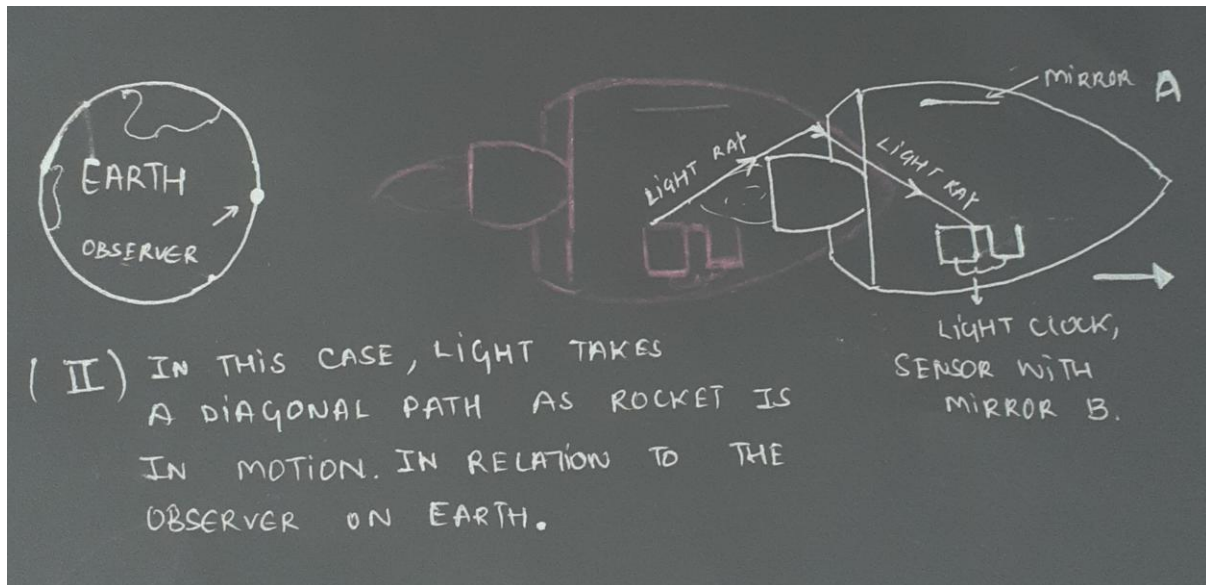 MIRROR A
LIGHT RAY
LIGHT RAY
EARTH
OBSERVER
LIGHT CLOCK,
SENSOR WITH
MIRROR B.
(II) IN THIS CASE, LIGHT TAKES
A DIAGONAL PATH AS ROCKET IS
IN MOTION. IN RELATION TO THE
OBSERVER ON EARTH.